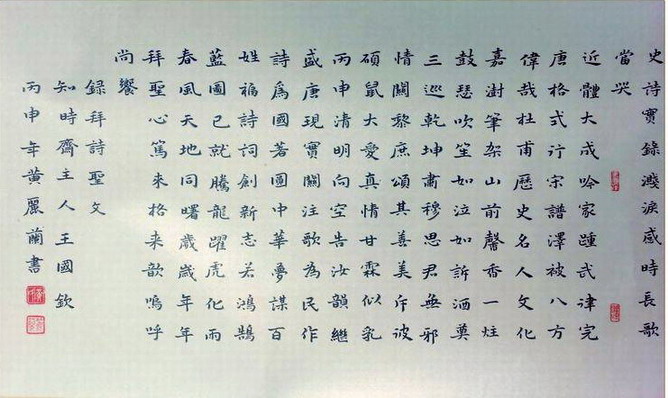 史詩實錄濺淚感時長歌
當哭
近體大成吟家踵武律完
唐格式行宋譜澤被八方
偉哉杜甫歷史名人文化
嘉澍筆架山前馨香一炷
鼓瑟吹笙如泣如訴酒奠
三巡乾坤肅穆思君無邪
情關黎庶頌其善美斥彼
碩鼠大愛真情甘霖似乳
丙申清明向空告汝韻繼
盛唐現實關注歌為民作
詩為國著圖中華夢謀百
姓福詩詞創新志若鴻鵠
藍圖已就騰龍躍虎化雨
春風天地同曙歲歲年年
拜聖心篤來格来歆嗚呼
尚饗
錄拜詩聖文
知時齋主人王國欽
丙申年黃麗蘭書